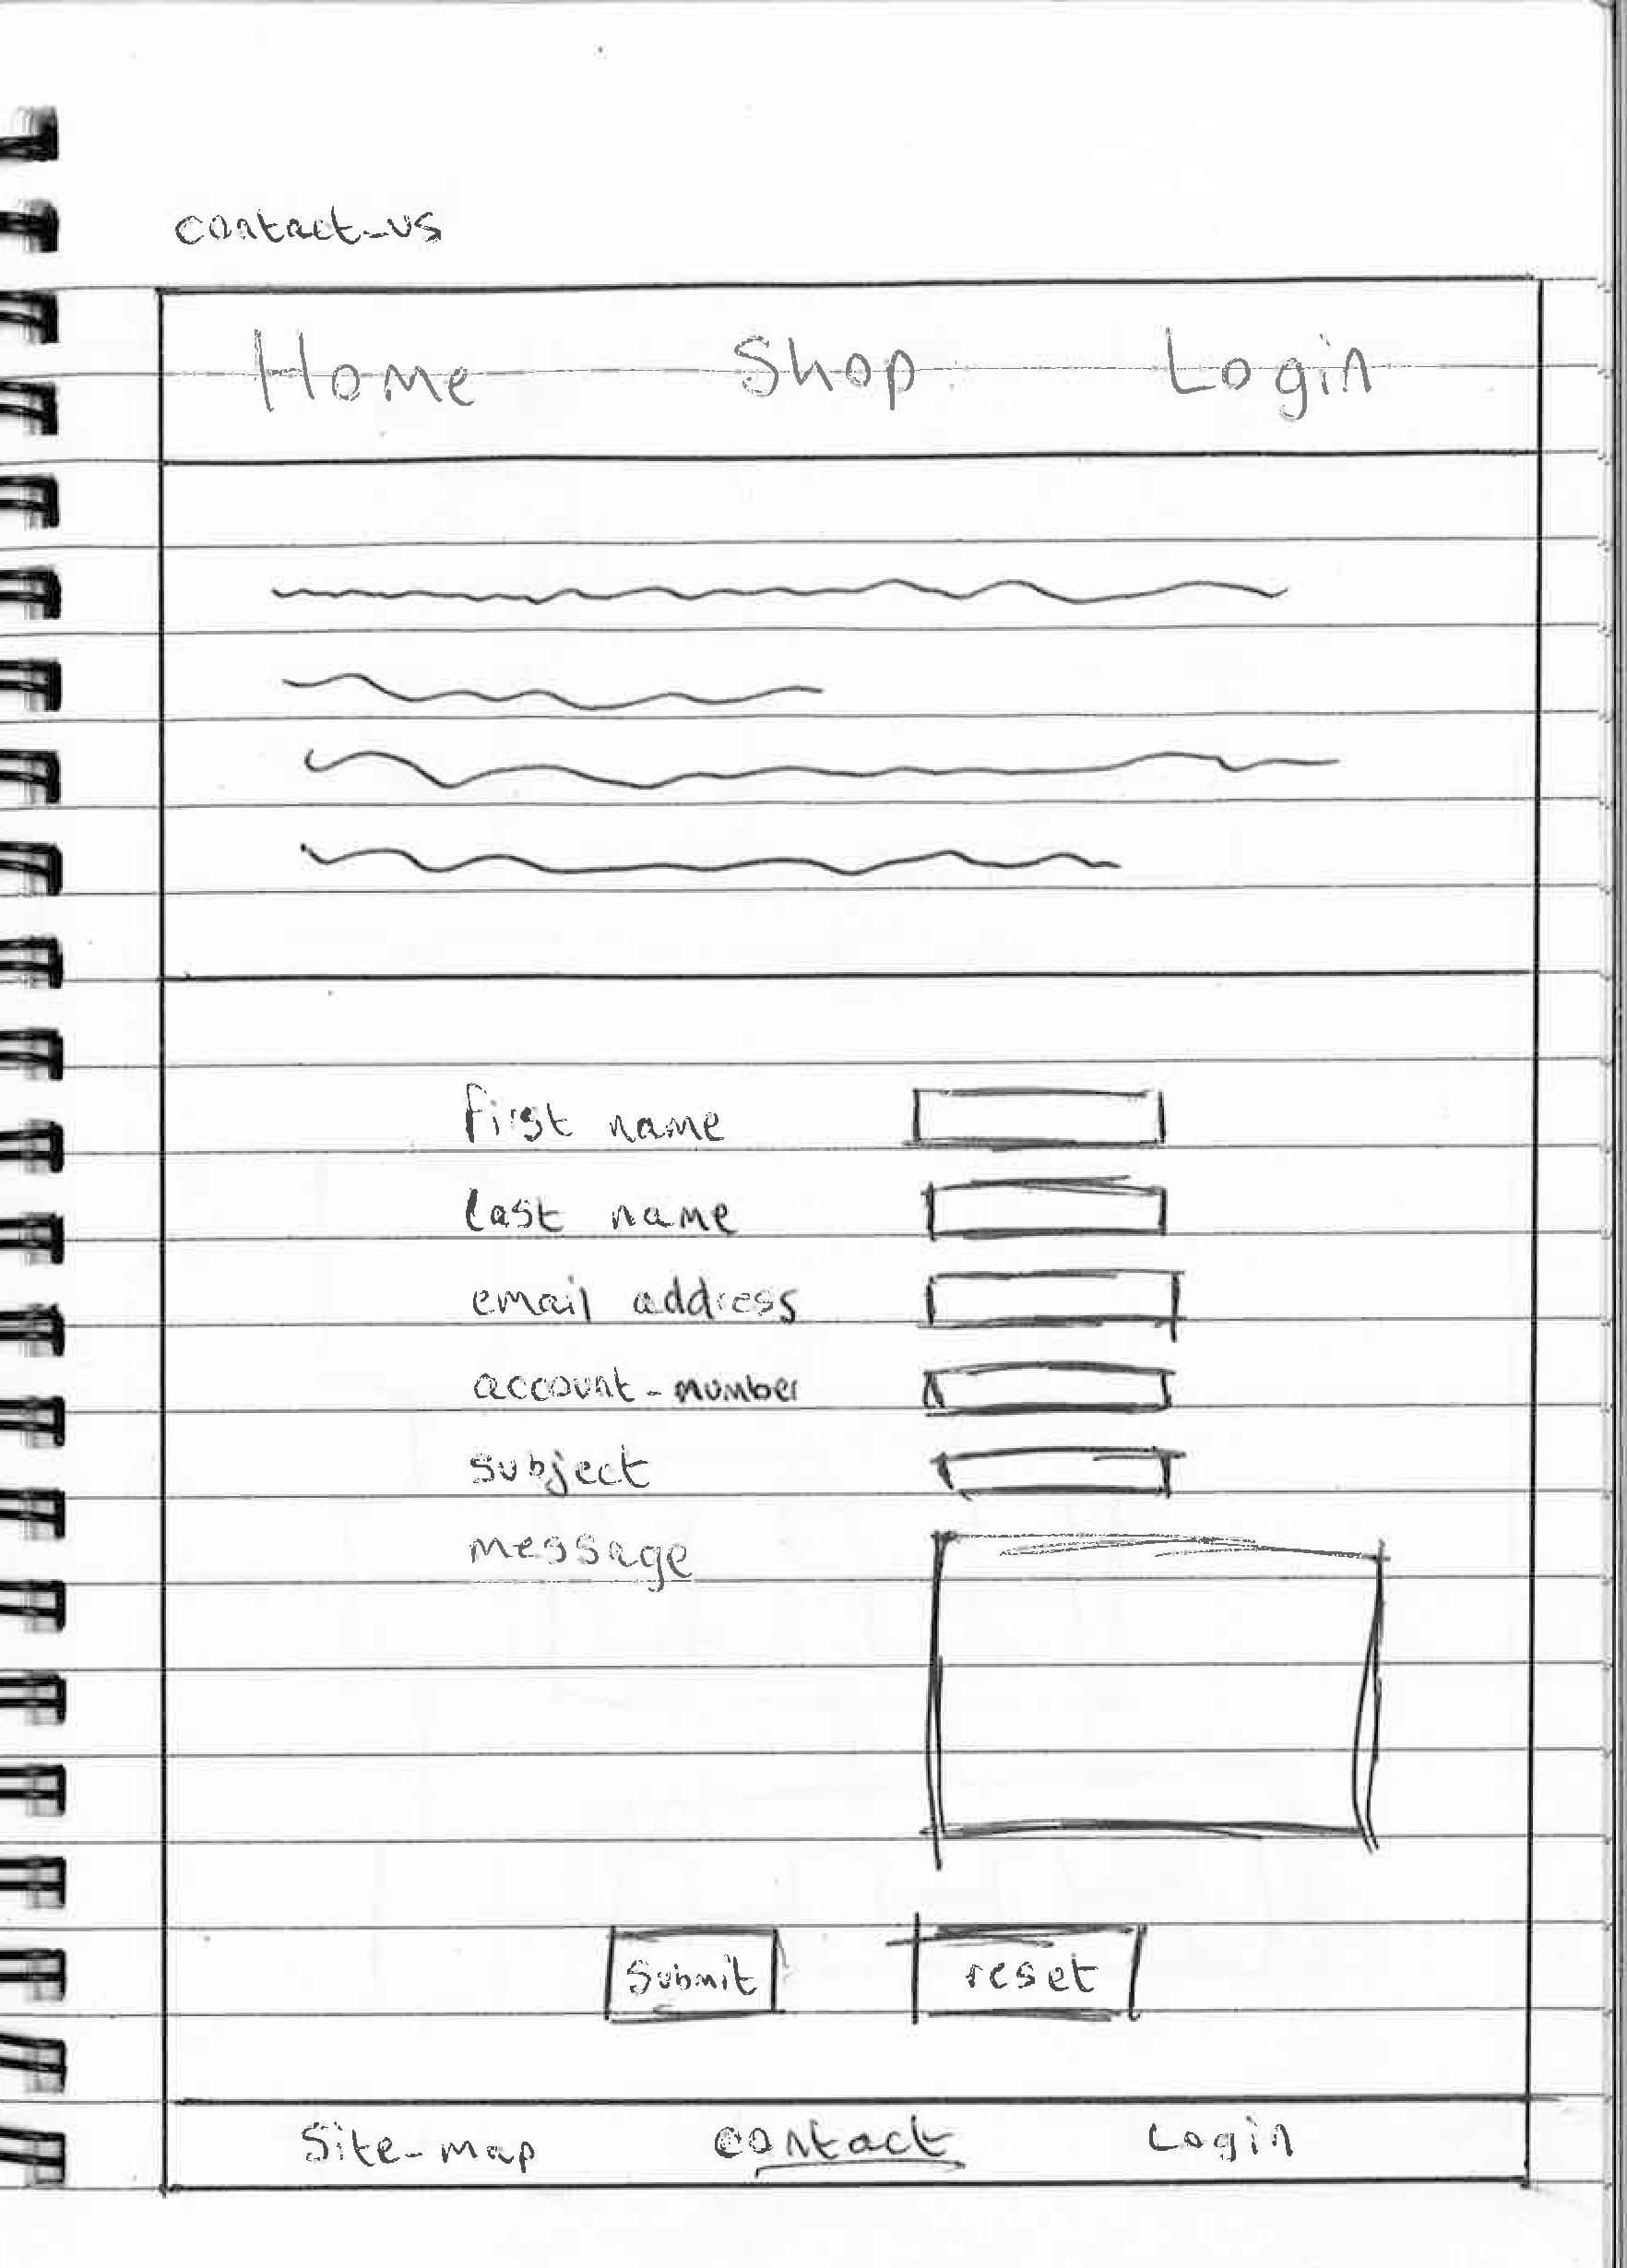 contact-us
Home Shop Login
first name
last name
email address
account-number
subject
message
submit reset
Site-map contact Login